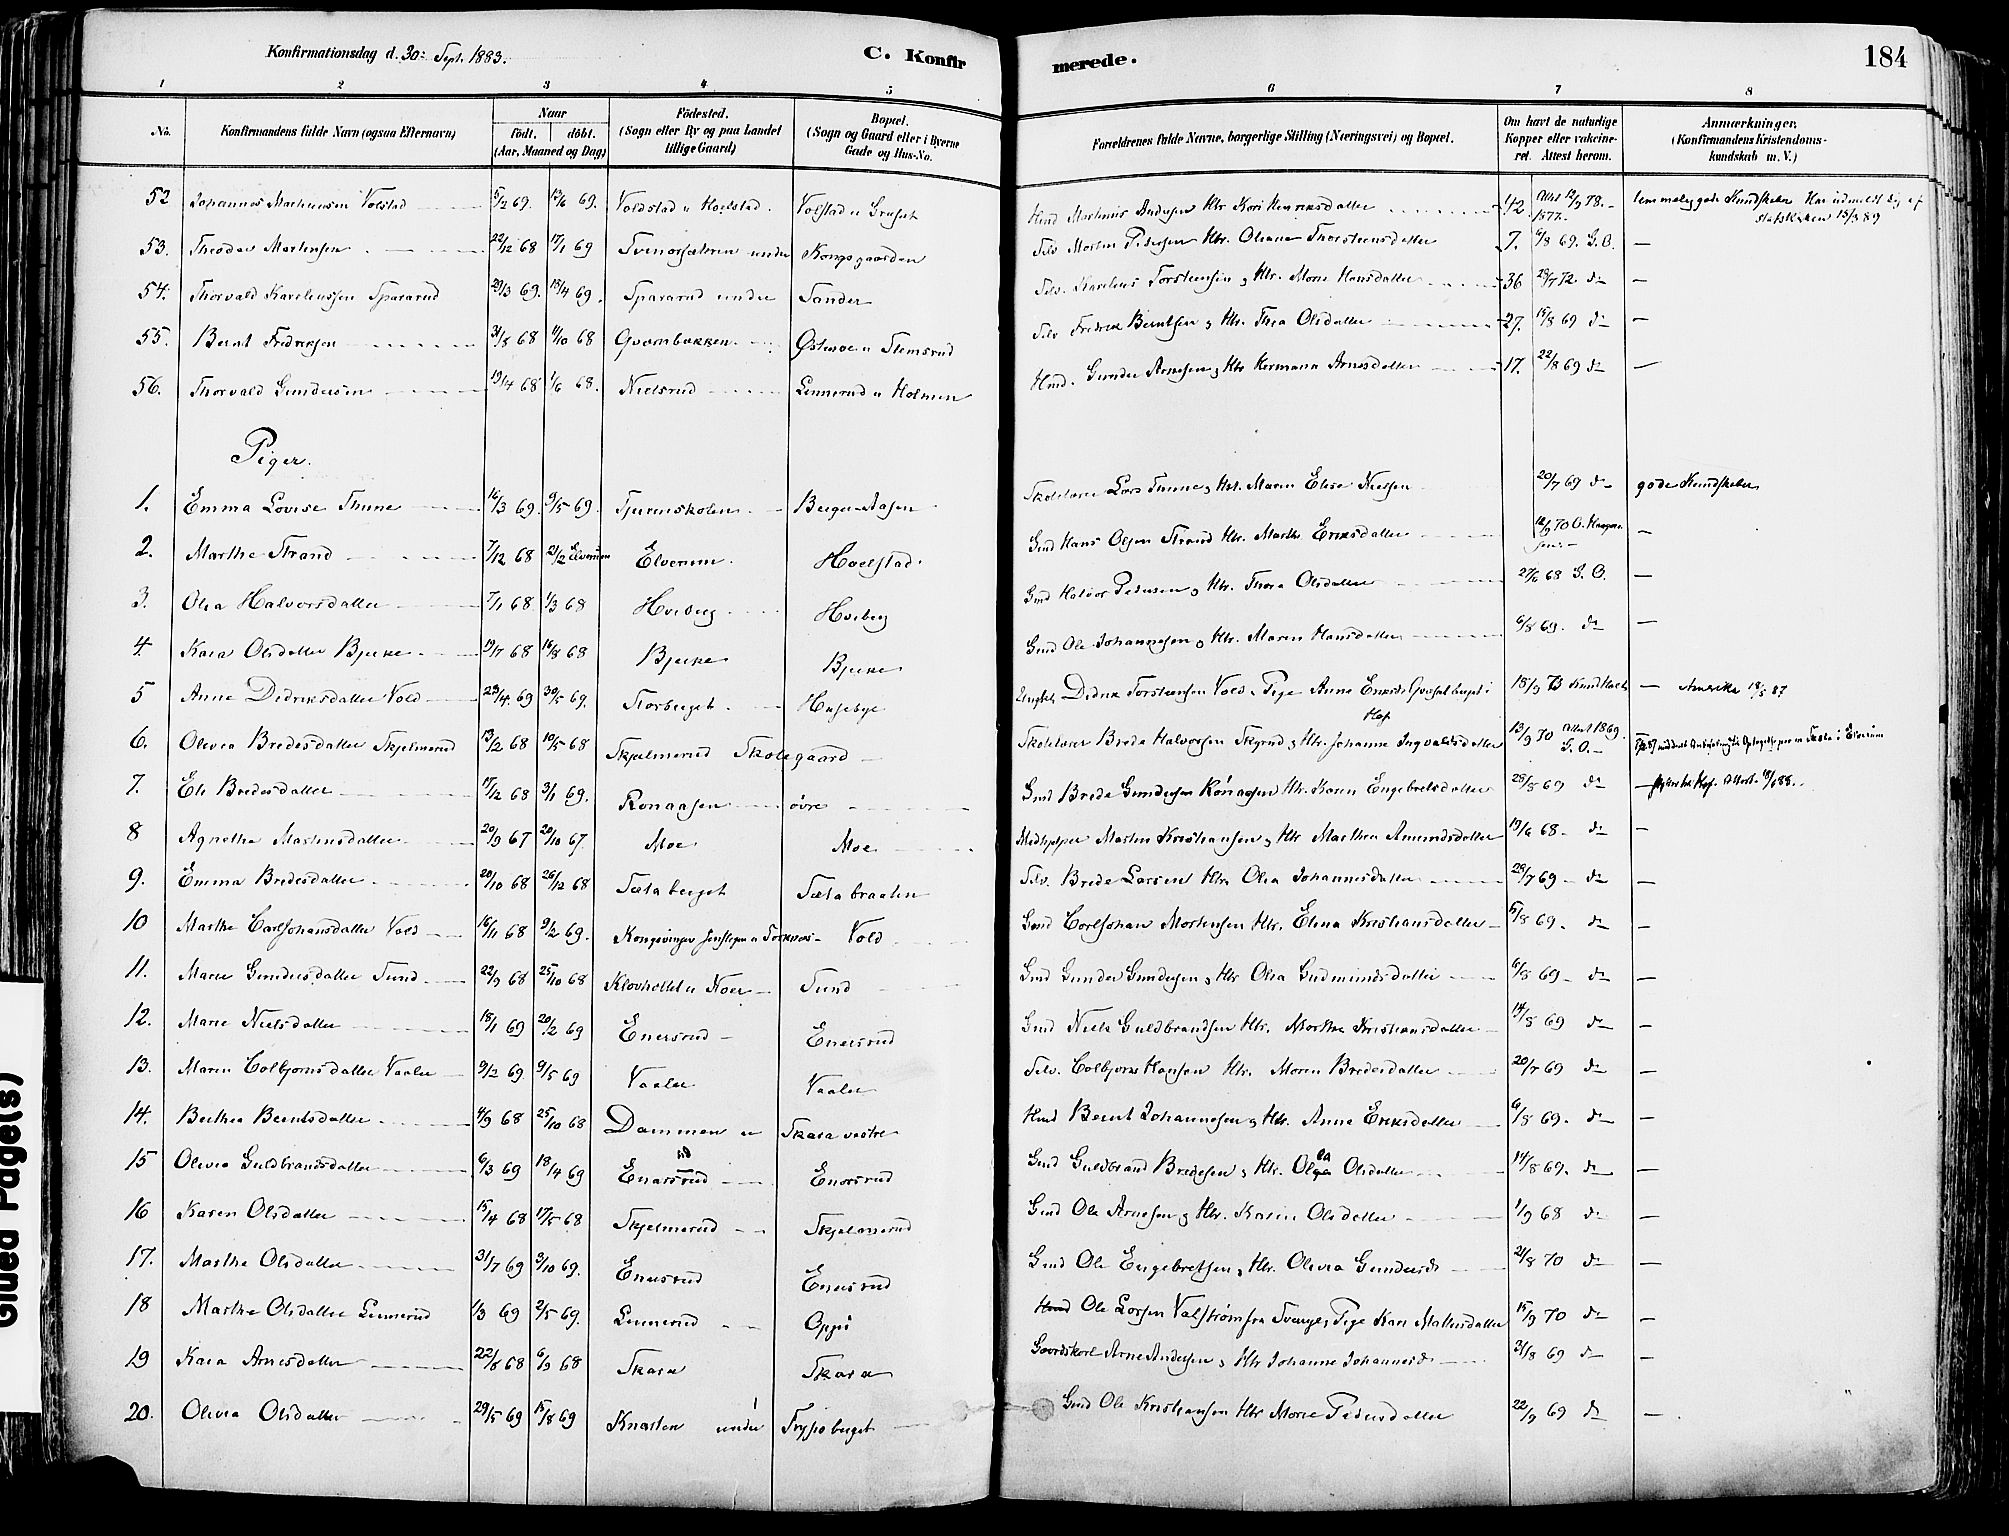 Konfirmationsdag d. 30: Sept. 1883.
C. Konfirmerede.
184
1 2 3 4 5 6 7 8
No.
Konfirmandens fulde Navn (ogsaa Efternavn)
Naar
født. døbt.
(Aar, Maaned og Dag)
Fødested.
(Sogn eller By og paa Landet
tillige Gaard)
Bopæl.
(Sogn og Gaard eller i Byerne
Gade og Hus-No.
Forældrenes fulde Navne, borgerlige Stilling (Næringsvei) og Bopæl.
Om havt de naturlige
Kopper eller vakcine-
ret. Attest herom.
Anmærkninger,
(Konfirmandens Kristendoms-
kundskab m. V.)
52 Johannes Martinusen Volstad 5/2 69. 12/6 69. Voldstad u Hoelstad. Volstad u Gruset Martinus Andersen Htr. Kari Henriksdatter 42 Attest 12/9 78. 1877. gode Kundskaber Har udmeldt sig af
Statskirken 15/3 89
53. Theodor Martensen 22/12 68 17/1 69 under Kongsgaarden Selv. Morten Pedersen Htr. Oleane Thorstensdatter 7. 6/8 69. S.O. —
54. Thorvald Kareliussen Spararud 29/3 69. 18/4 69. Spararud under Sander Selv. Karelius Torstensen & Htr. Marie Hansdatter 36 29/7 72. do —
55. Bernt Fredriksen 31/8 68 11/10 68 Gvarnbakken Østmoe u Stemsrud Selv Fredrik Berntsen & Htr. Thea Olsdatter 27. 15/8 69 do —
56. Thorvald Gundersen 19/4 68 1/6 68. Nielsrud Linnerud u Holmen Hmd. Gunder Arnesen & Htr Hermana Arnesdatter 17. 22/8 69 do —
Piger.
1. Emma Lovise Thune 16/3 69. 9/5 69. Tjurenskolen Berger-Aasen Skolelærer Lars Thune & Hst. Maren Elise Nielsen 20/7 69 do gode Kundskaber
2. Marthe Strand 7/12 68 21/2 Elverum Elverum. Hoelstad. Gmd Hans Olsen Strand Htr. Marthe Eriksdatter 12/9 70 O. —
3. Olea Halvorsdatter 7/1 68. 1/3 68 Hveberg Hveberg Gmd Halvor Pedersen & Htr. Thora Olsdatter 27/6 68 S. O. —
4. Kaia Olsdatter Bjerke 19/7 68 16/8 68 Bjerke Bjerke Gmd Ole Johannesen & Htr. Maren Hansdatter 6/8 69. do —
5 Anne Didriksdatter Vold 23/4. 69 30/5 69. Storberget. Husebye Ungkl. Didrik Torstensen Vold & Pige Anne Eriksdr i
Hof 18/9 73 — Amerika 19/5 87
6. Olivia Bredesdatter Skjelmerud 13/2 68 10/5 68 Skjelmerud Skolegaard Skolelærer Brede Halvorsen Skyrud & Htr. Johanne Ingvaldsdatter 13/9 70 Attest 1869. S. O. i Elverum
7. Eli Bredesdatter 17/12 68 3/1 69. Ronaasen øvre Gmd Brede Gundersen Rønaasen Htr. Karen Engebretsdatter 28/8 69 do — Attest. 18/1 88.
8 Agnethe Martinsdatter 20/9 67 20/10 67. Moe Moe Medhjelper Martin Kristiansen & Htr Marthea Amundsdatter 19/6 68. do —
9. Emma Bredesdatter 20/10 68 26/12 68 Sætaberget Sætabraaten Selv. Brede Larsen Htr. Olea Johannesdatter 28/7 69 do —
10 Marthe Carljohansdatter Vold 16/11 68 9/2 69. Kongsvinger Vold Gmd Carljohan Mortensen Htr. Elena Kristiansdatter 15/8 69. do —
11. Marie Gundersdatter Sund 22/9 68 25/10 68 Klovholtet u Noer Sund Gmd Gunder Gundersen & Htr Olea Gudmundsdatter 6/8 69. do —
12. Marie Nielsdatter 18/1 69 20/2 69 Enersrud Enersrud Gmd Niels Guldbrandsen Htr. Marthe Kristiansdatter 14/8 69 do —
13. Maren Colbjørnsdatter Vaaler 9/2 69. 9/5 69 Vaaler Vaaler Selv. Colbjørn Hansen Htr. Maren Bredesdatter 20/7 69 do —
14. Berthea Berntsdatter 4/9 68 25/10 68 Dammen u Skara vestre Hmd Bernt Johannesen & Htr. Anne Eriksdatter 6/8 69. do —
15 Olivia Guldbrandsdatter 6/3 69 18/4 69 Enersrud Enersrud Gmd Guldbrand Bredesen & Htr. Olea Olsdatter 14/8 69. do —
16 Karen Olsdatter 15/4 68 17/5 68 Skjelmerud Skjelmerud Gmd Ole Arnesen & Htr. Karen Olsdatter 1/9 68 do —
17. Marthe Olsdatter 31/7 69 3/10 69. Enersrud Enersrud Gmd Ole Engebretsen & Htr. Olivia Gundersdr 21/8 70 do —
18 Marthe Olsdatter Linnerud 1/3 69 2/5 69. Linnerud Oppi Ole Larsen Valstrøm fra Sverige, Pige Kari Mattisdatter 15/9 70 do —
19 Kaia Arnesdatter 22/8 68 6/9 68 Skara Skara Gaardskarl Arne Andersen & Htr Johanne Johannesdr 31/8 69 do —
20. Olivia Olsdatter 29/5 69 15/8 69 Knasten under Frysjøberget Gmd Ole Kristiansen Htr Marie Pedersdatter 22/9 69 do —
Glued Page(s)